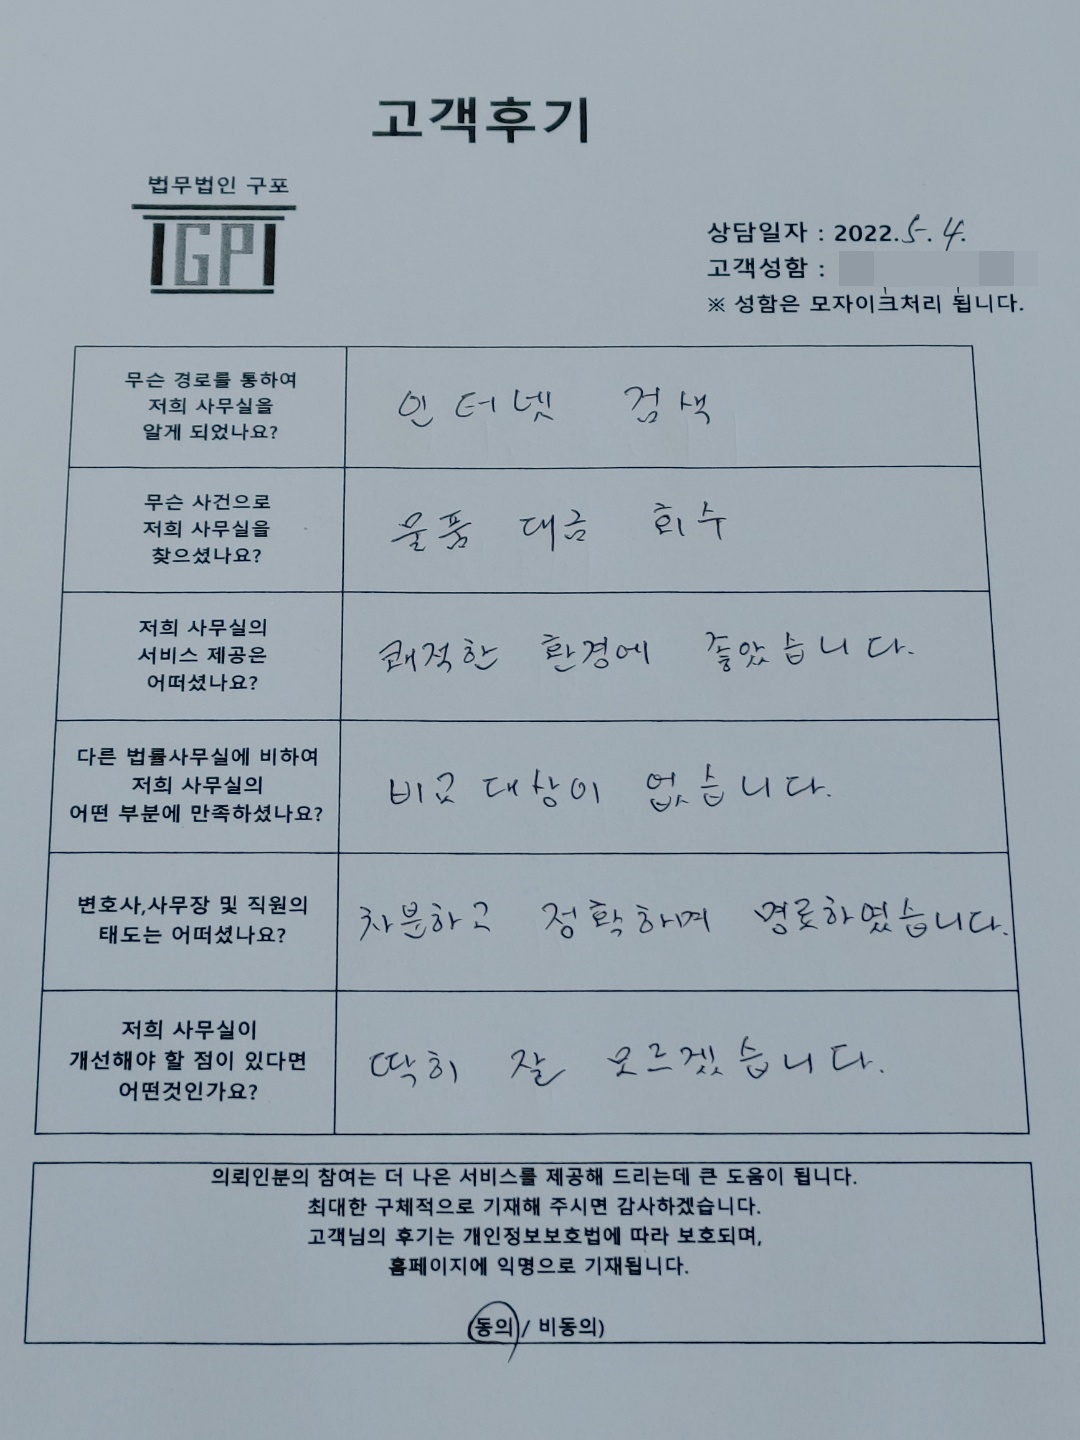 고객후기
법무법인 구포
IGPI
상담일자 : 2022.5.4.
고객성함 :
※ 성함은 모자이크처리 됩니다.
무슨 경로를 통하여
저희 사무실을
알게 되었나요?
인터넷 검색
무슨 사건으로
저희 사무실을
찾으셨나요?
물품 대금 회수
저희 사무실의
서비스 제공은
어떠셨나요?
쾌적한 환경에 좋았습니다.
다른 법률사무실에 비하여
저희 사무실의
어떤 부분에 만족하셨나요?
비교 대상이 없습니다.
변호사,사무장 및 직원의
태도는 어떠셨나요?
차분하고 정확하며 명료하였습니다.
저희 사무실이
개선해야 할 점이 있다면
어떤것인가요?
딱히 잘 모르겠습니다.
의뢰인분의 참여는 더 나은 서비스를 제공해 드리는데 큰 도움이 됩니다.
최대한 구체적으로 기재해 주시면 감사하겠습니다.
고객님의 후기는 개인정보보호법에 따라 보호되며,
홈페이지에 익명으로 기재됩니다.
(동의 / 비동의)